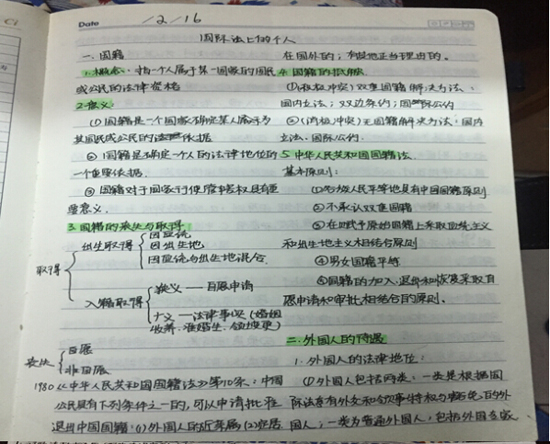 Date
12/16
国际法上的个人
一. 国籍
1.概念: 指一个人属于某一国家的国民
或公民的法律资格
2.意义
①国籍是一个国家确定某人属于为
其国民或公民的法律依据
②国籍是确定一个人的法律地位的
一个重要依据.
③国籍对于国家行使管辖权具有重
要意义.
3.国籍的来生与取得
取得
出生取得
因血统
因出生地
因血统与出生地混合
入籍取得
狭义——自愿申请
广义——法律事项(婚姻
收养.准婚生.领土变更)
丧失
自愿
非自愿
1980《中华人民共和国国籍法》第10条: 中国
公民具有下列条件之一的,可以申请批准
退出中国国籍:(1)外国人的近亲属(2)定居
在国外的; 有其他正当理由的.
4.国籍的抵触
①(积极冲突)双重国籍解决方法:
国内立法; 双边条约; 国际公约
②(消极冲突)无国籍解决方法: 国内
立法.国际公约.
5.中华人民共和国国籍法.
基本原则:
①各族人民平等地具有中国国籍原则
②不承认双重国籍
③在赋予原始国籍上采取血统主义
和出生地主义相结合原则
④男女国籍平等
⑤国籍的加入.退出和恢复采取自
愿申请和审批相结合的原则.
二.外国人的待遇
1.外国人的法律地位:
①外国人包括两类: 一类是根据国
际法享有外交和领事特权与豁免的外
国人; 一类为普通外国人,包括外国专家